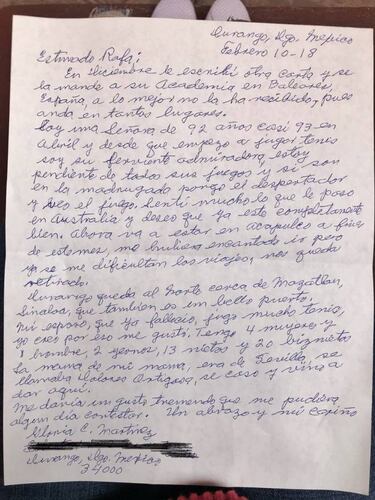 Durango, Dgo. Mexico
Febrero 10-18
Estimado Rafa:
En diciembre le escribí otra carta y se
la mande a su Academia en Baleares,
España, a lo mejor no la ha recibido, pues
anda en tantos lugares.
Soy una señora de 92 años casi 93 en
Abril y desde que empezo a jugar tenis
soy su ferviente admiradora, estoy
pendiente de todos sus juegos y si son
en la madrugada pongo el despertador
y veo el juego. Sentí mucho lo que le paso
en Australia y deseo que ya este completamente
bien. Ahora va a estar en Acapulco a fines
de este mes, me hubiera encantado ir pero
ya se me dificultan los viajes, nos queda
retirado.
Durango queda al Norte cerca de Mazatlan,
Sinaloa, que tambien es un bello puerto.
Mi esposo, que ya fallecio, jugo mucho tenis,
yo creo por eso me gusta. Tengo 4 mujeres y
1 hombre, 2 yernos, 13 nietos y 20 bisnietos
La mama de mi mama, era de Sevilla, se
llamaba Dolores Ortigosa, se caso y vino a
dar aquí.
Me daria un gusto tremendo que me pudiera
algun dia contestar. Un abrazo y mi cariño
Gloria C. Martinez
Durango, Dgo. Mexico
34000